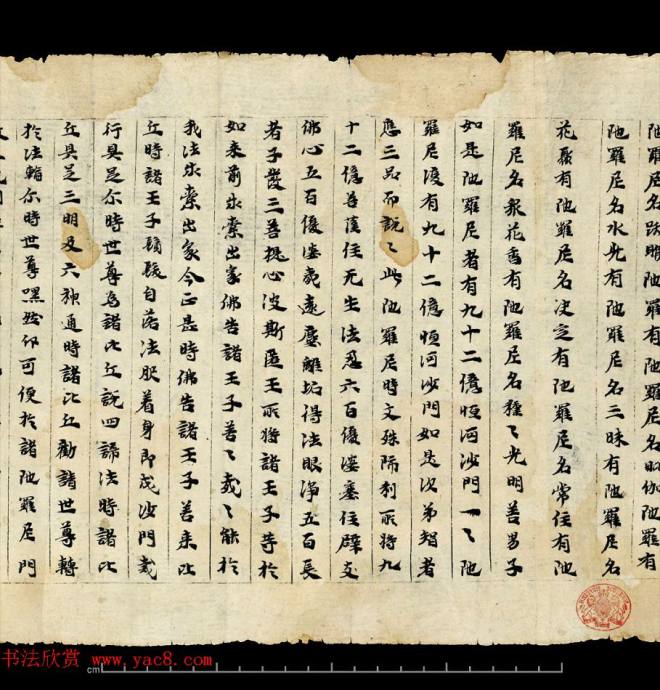 陁羅尼名 陁羅尼名 陁羅有
陁羅尼名水光有陁羅尼名三昧有陁羅尼名
花聚有陁羅尼名决定有陁羅尼名常住有陁
羅尼名衆花香有陁羅尼名種〻光明善男子
如是陁羅尼者有九十二億恒河沙門一〻陁
羅尼復有九十二億恒河沙門如是次弟智者
應三品而說〻此陁羅尼時文殊師利所將九
十二億菩薩住无生法忍六百優婆塞住辟支
佛心五百優婆夷遠塵離垢得法眼净五百長
者子發三菩提心波斯匿王所將諸王子等於
如来前求索出家佛告諸王子善〻㢤〻能於
我法求索出家今正是時佛告諸王子善来比
丘時諸王子鬚髮自落法服着身即成沙門㦯
行具足尒時世尊爲諸比丘說四諦法時諸比
丘具足三明及六神通時諸比丘勸請世尊轉
於法輪尒時世尊嘿然印可便於諸陁羅尼門
书法欣赏 www.yac8.com
cm